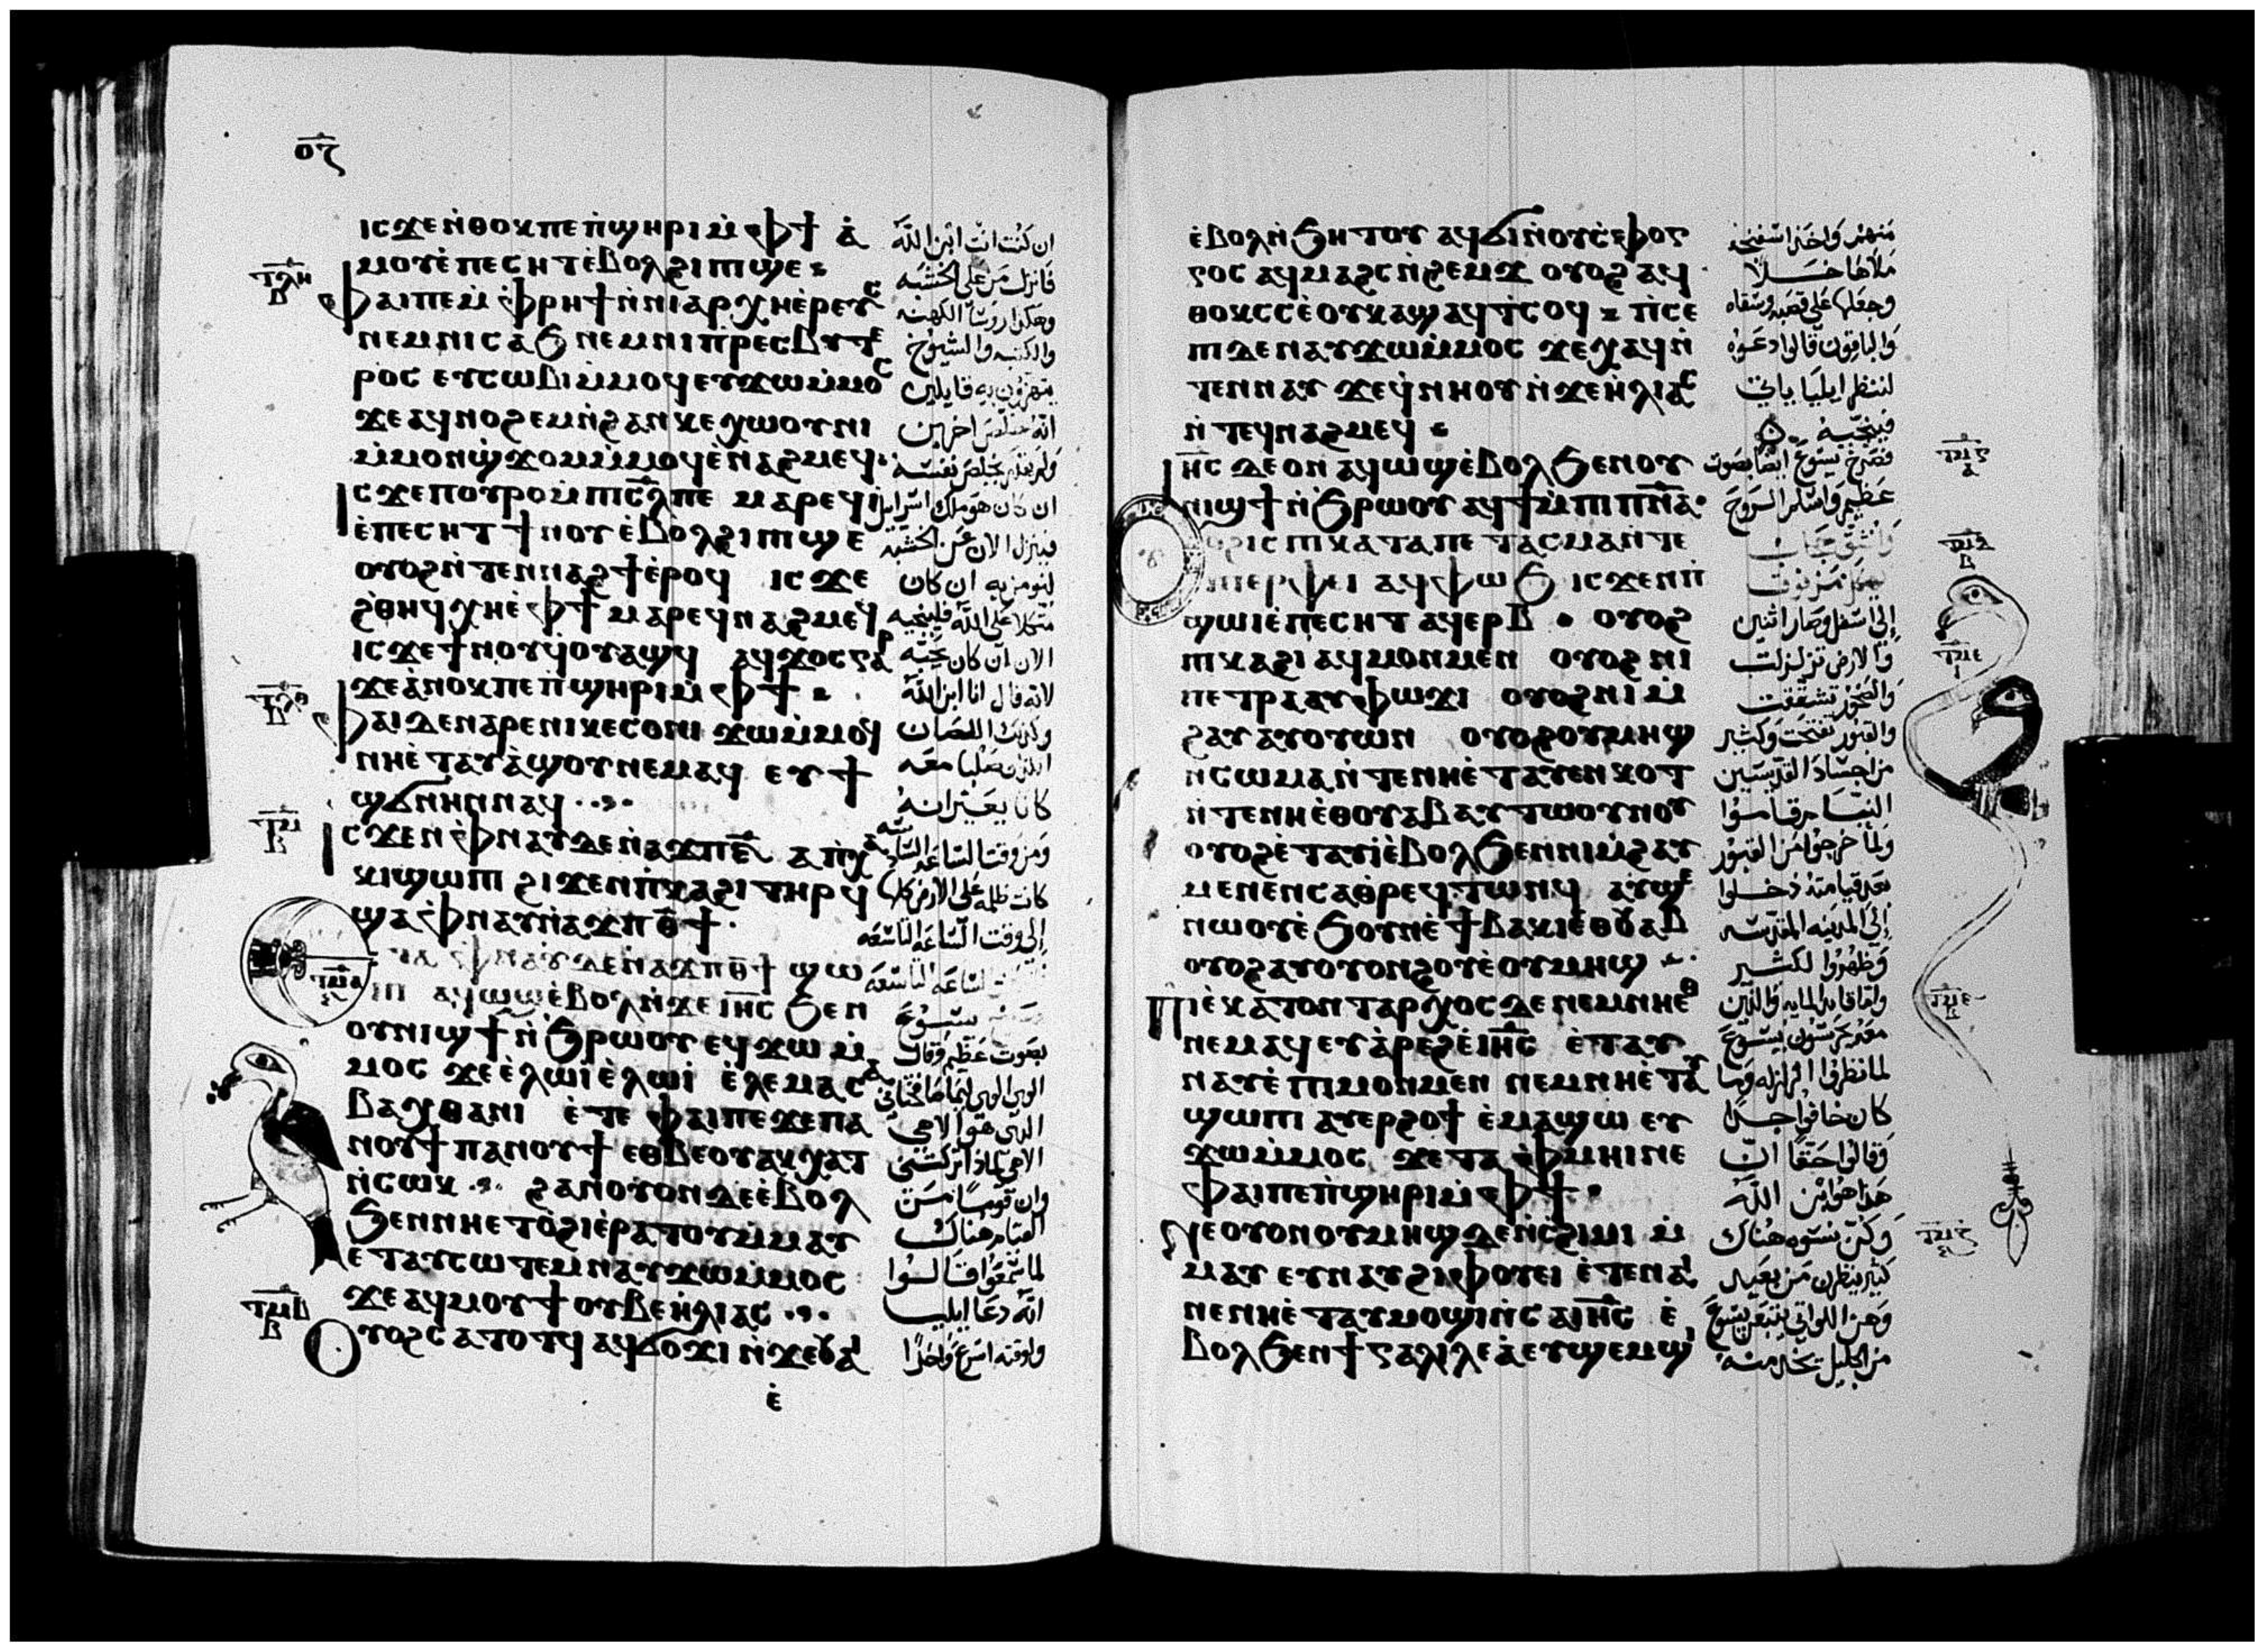 ⲟⲍ
ⲓⲥϫⲉⲛ̇ⲑⲟⲕⲡⲉⲡ̇ϣⲏⲣⲓⲙ̇ⲫϯ ⲁ̇
ⲙⲟⲩⲉ̇ⲡⲉⲥⲏⲧⲉ̇ⲃⲟⲗϩⲓⲡϣⲉ
ⲧⲗⲏ
ⲃ
ⲫⲁⲓⲡⲉⲙ̇ⲫⲣⲏϯⲛ̇ⲛⲓⲁⲣⲭⲏⲉ̇ⲣⲉⲩⲥ
ⲛⲉⲙⲛⲓⲥⲁϧ ⲛⲉⲙⲛⲓⲡ̇ⲣⲉⲥⲃⲩⲧⲉ
ⲣⲟⲥ ⲉⲩⲥⲱⲃⲓⲙ̇ⲙⲟϥⲉⲩϫⲱⲙ̇ⲙⲟⲥ
ϫⲉⲁϥⲛⲟϩⲉⲙⲛ̇ϩⲁⲛⲕⲉⲭⲱⲟⲩⲛⲓ
ⲙ̇ⲙⲟⲛϣ̇ϫⲟⲙⲙ̇ⲙⲟϥⲉ̇ⲛⲁϩⲙⲉϥ
ⲓⲥϫⲉⲡⲟⲩⲣⲟⲙ̇ⲡⲓⲥ̅ⲗⲡⲉ ⲙⲁⲣⲉϥⲓ̇
ⲉ̇ⲡⲉⲥⲏⲧ ϯⲛⲟⲩ ⲉ̇ⲃⲟⲗϩⲓⲡϣⲉ
ⲟⲩⲟϩⲛ̇ⲧⲉⲛⲛⲁϩϯⲉ̇ⲣⲟϥ ⲓⲥϫⲉ
ϩ̇ⲑⲏϥⲭⲏⲉ̇ⲫϯ ⲙⲁⲣⲉϥⲛⲁϩⲙⲉϥ
ⲓⲥϫⲉϯⲛⲟⲩϥⲟⲩⲁϣϥ ⲁϥϫⲟⲥⲅⲁⲣ
ϫⲉⲁ̇ⲛⲟⲕⲡⲉⲡ̇ϣⲏⲣⲓⲙ̇ⲫϯ
ⲧⲗⲑ
ⲃ
ⲫⲁⲓⲇⲉⲛⲁⲣⲉⲛⲓⲕⲉⲥⲟⲛⲓ ϫⲱⲙ̇ⲙⲟϥ
ⲛⲏⲉ̇ⲧⲁⲩⲁ̇ϣⲟⲩⲛⲉⲙⲁϥ ⲉⲩϯ
ϣϭⲛⲏⲛⲛⲁϥ
ⲧⲙ
ⲃ
ⲓⲥϫⲉⲛ ⲫ̇ⲛⲁⲩⲇⲉⲛ̇ⲁϫⲡⲋ̅ ⲁⲡ̇ⲭⲁ
ⲕⲓϣⲱⲡⲓ ϩⲓϫⲉⲛⲡ̇ⲕⲁϩⲓ ⲧⲏⲣϥ
ϣⲁⲫ̇ⲛⲁⲩⲛ̇ⲁϫⲡⲑ̅ϯ
ⲫ̇ⲛⲁⲩⲇⲉⲛ̇ⲁϫⲡⲑ̅ϯ ϣⲱ
ⲧⲙⲁ
ⲡⲓ ⲁϥⲱϣⲉ̇ⲃⲟⲗⲛ̇ϫⲉⲓⲏ̅ⲥ ϧⲉⲛ
ⲟⲩⲛⲓϣϯⲛ̇ϧⲣⲱⲟⲩ ⲉϥϫⲱⲙ̇
ⲙⲟⲥ ϫⲉⲉ̇ⲗⲱⲓ̇ⲉ̇ⲗⲱⲓ̇ ⲉ̇ⲗⲉⲙⲁⲥⲁ
ⲃⲁⲭⲑⲁⲛⲓ ⲉ̇ⲧⲉ ⲫⲁⲓⲡⲉϫⲉⲡⲁ
ⲛⲟⲩϯ ⲡⲁⲛⲟⲩϯ ⲉⲑⲃⲉⲟⲩⲁⲕⲭⲁⲧ
ⲛ̇ⲥⲱⲕ ϩⲁⲛⲟⲩⲟⲛⲇⲉⲉ̇ⲃⲟⲗ
ϧⲉⲛⲛⲏⲉⲧⲟ̇ϩⲓⲉ̇ⲣⲁⲧⲟⲩⲙ̇ⲙⲁⲩ
ⲉ̇ⲧⲁⲩⲥⲱⲧⲉⲙⲛⲁⲩϫⲱⲙ̇ⲙⲟⲥ
ϫⲉⲁϥⲙⲟⲩϯⲟⲩⲃⲉⲏ̇ⲗⲓⲁⲥ
ⲧⲙⲃ
ⲃ
ⲟⲩⲟϩⲥⲁⲧⲟⲧϥ ⲁϥϭⲟϫⲓ ⲛ̇ϫⲉⲟⲩⲁⲓ
ⲉ̇
ان كنت انت ابن الله
فانزل من على الخشبه
وهكذا روسا الكهنه
والكتبه والشيوخ
يتهزون به قايلين
انه خلص اخرين
ولم يقدر يخلص نفسه
ان كان هو ملك اسراييل
فينزل الان عن الخشبه
لنومن به ان كان
متكلا على الله فلينجيه
الان ان كان يحبه
لانه قال انا ابن الله
وكذلك اللصان
اللذان صلبا معه
كانا يعيرانه
ومن وقت الساعه السادسه
كانت ظلمه على الارض كلها
إلى وقت الساعه التاسعه
الساعه التاسعه
يسوع
بصوت عظيم وقال
الوي الوي ليما صافختاني
الذي هو الاهي
الاهي لماذا تركتنى
وان قوما من
القيام هناك
لما سمعوا قالوا
انه دعا ايليا
ولوقته اسرع واحدا
ⲉ̇ⲃⲟⲗⲛ̇ϧⲏⲧⲟⲩ ⲁϥϭⲓⲛ̇ⲟⲩⲥ̇ⲫⲟⲅ
ⲅⲟⲥ ⲁϥⲙⲁϩⲥⲛ̇ϩⲉⲙϫ ⲟⲩⲟϩ ⲁϥ
ⲑⲟⲕⲥⲥⲉ̇ⲟⲩⲕⲁϣ ⲁϥⲧ̇ⲥⲟϥ ⲡ̇ⲥⲉ
ⲡⲓⲇⲉⲛⲁⲩϫⲱⲙ̇ⲙⲟⲥ ϫⲉⲭⲁϥⲛ̇
ⲧⲉⲛⲛⲁⲩ ϫⲉϥ̇ⲛⲏⲟⲩ ⲛ̇ϫⲉⲏ̇ⲗⲓⲁⲥ
ⲛ̇ⲧⲉϥⲛⲁϩⲙⲉϥ
ⲓⲏ̅ⲥ ⲇⲉⲟⲛ ⲁϥⲱϣⲉ̇ⲃⲟⲗϧⲉⲛⲟⲩ
ⲛⲓϣϯⲛ̇ϧⲣⲱⲟⲩ ⲁϥϯⲙ̇ⲡⲓⲡⲛ̅ⲁ
ⲟϩ ⲓⲥ ⲡⲓⲕⲁⲧⲁⲡⲉⲧⲁⲥⲙⲁⲛ̇ⲧⲉ
ⲡⲓⲉⲣⲫⲉⲓ ⲁϥⲫⲱϧ ⲓⲥϫⲉⲛⲡ̇
ϣⲱⲓⲉ̇ⲡⲉⲥⲏⲧ ⲁϥⲉⲣⲃ ⲟⲩⲟϩ
ⲡⲓⲕⲁϩⲓ ⲁϥⲙⲟⲛⲙⲉⲛ ⲟⲩⲟϩ ⲛⲓ
ⲡⲉⲧⲣⲁⲁⲩⲫⲱϫⲓ ⲟⲩⲟϩⲛⲓⲙ̇
ϩⲁⲩ ⲁⲩⲟⲩⲱⲛ ⲟⲩⲟϩⲟⲩⲙⲏϣ
ⲛ̇ⲥⲱⲙⲁⲛ̇ⲧⲉⲛⲏⲉ̇ⲧⲁⲩⲉⲛⲕⲟⲧ
ⲛ̇ⲧⲉⲛⲏⲉⲑⲟⲩⲁⲃ ⲁⲩⲧⲱⲟⲩⲛⲟⲩ
ⲟⲩⲟϩⲉ̇ⲧⲁⲩⲓ̇ⲉ̇ⲃⲟⲗϧⲉⲛⲛⲓⲙ̇ϩⲁⲩ
ⲙⲉⲛⲉⲛⲥⲁⲑ̇ⲣⲉϥⲧⲱⲛϥ ⲁⲩϣⲉ
ⲛⲱⲟⲩⲉ̇ϧⲟⲩⲛⲉ̇ϯⲃⲁⲕⲓⲉ̇ⲑⲟⲩⲁⲃ
ⲟⲩⲟϩⲁⲩⲟⲩⲟⲛϩⲟⲩⲉ̇ⲟⲩⲙⲏϣ
ⲡⲓⲉ̇ⲕⲁⲧⲟⲛⲧⲁⲣⲭⲟⲥⲇⲉⲛⲉⲙⲛⲏⲉⲑ
ⲛⲉⲙⲁϥⲉⲩⲁ̇ⲣⲉϩⲉ̇ⲓⲏ̅ⲥ ⲉ̇ⲧⲁⲩ
ⲛⲁⲩⲉ̇ⲡⲓⲙⲟⲛⲙⲉⲛ ⲛⲉⲙⲛⲏⲉ̇ⲧⲁⲩ
ϣⲱⲡⲓ ⲁⲩⲉⲣϩⲟϯ ⲉ̇ⲙⲁϣⲱ ⲉⲩ
ϫⲱⲙ̇ⲙⲟⲥ ϫⲉⲧⲁ ⲫ̇ⲙⲏⲓⲛⲉ
ⲫⲁⲓⲡⲉⲡ̇ϣⲏⲣⲓⲙ̇ⲫϯ
ⲛⲉⲟⲩⲟⲛⲟⲩⲙⲏϣⲇⲉⲛ̇ⲥ̇ϩⲓⲙⲓ ⲙ̇
ⲙⲁⲩ ⲉⲩⲛⲁⲩϩⲓⲫⲟⲩⲉⲓ ⲉ̇ⲧⲉⲛⲁⲓ
ⲛⲉⲛⲏⲉ̇ⲧⲁⲩⲙⲟϣⲓⲛ̇ⲥⲁⲓⲏ̅ⲥ ⲉ̇
ⲃⲟⲗϧⲉⲛϯⲅⲁⲗⲓⲗⲉⲁ̇ⲉⲩϣⲉⲙϣⲓ
منهم واخذ اسفنجه
ملاها خلا
وجعلها على قصبه وسقاه
والباقون قالوا دعوه
لننظر ايليا ياتي
فينجيه
فصرخ يسوع ايضا بصوت
عظيم واسلم الروح
وانشق حجاب
من فوق
إلى اسفل وصار اثنين
والارض تزلزلت
والصخور تشققت
والقبور تفتحت وكثير
من اجساد القديسين
النيام قاموا
ولما خرجوا من القبور
بعد قيامته دخلوا
إلى المدينه المقدسه
وظهروا لكثير
واما قايد المايه والذين
معه يحرسون يسوع
لما نظروا الزلزله وما
كان خافوا جدا
وقالوا حقا ان
هذا هو ابن الله
وكن نسوه هناك
كثير ينظرن من بعيد
وهن اللواتي يتبعن يسوع
من الجليل يخدمنه
ⲧⲙⲅ
ⲁ
ⲧⲙⲇ
ⲃ
ⲧⲙⲉ
ⲓ
ⲧⲙⲋ
ⲃ
ⲧⲙⲍ
ⲋ